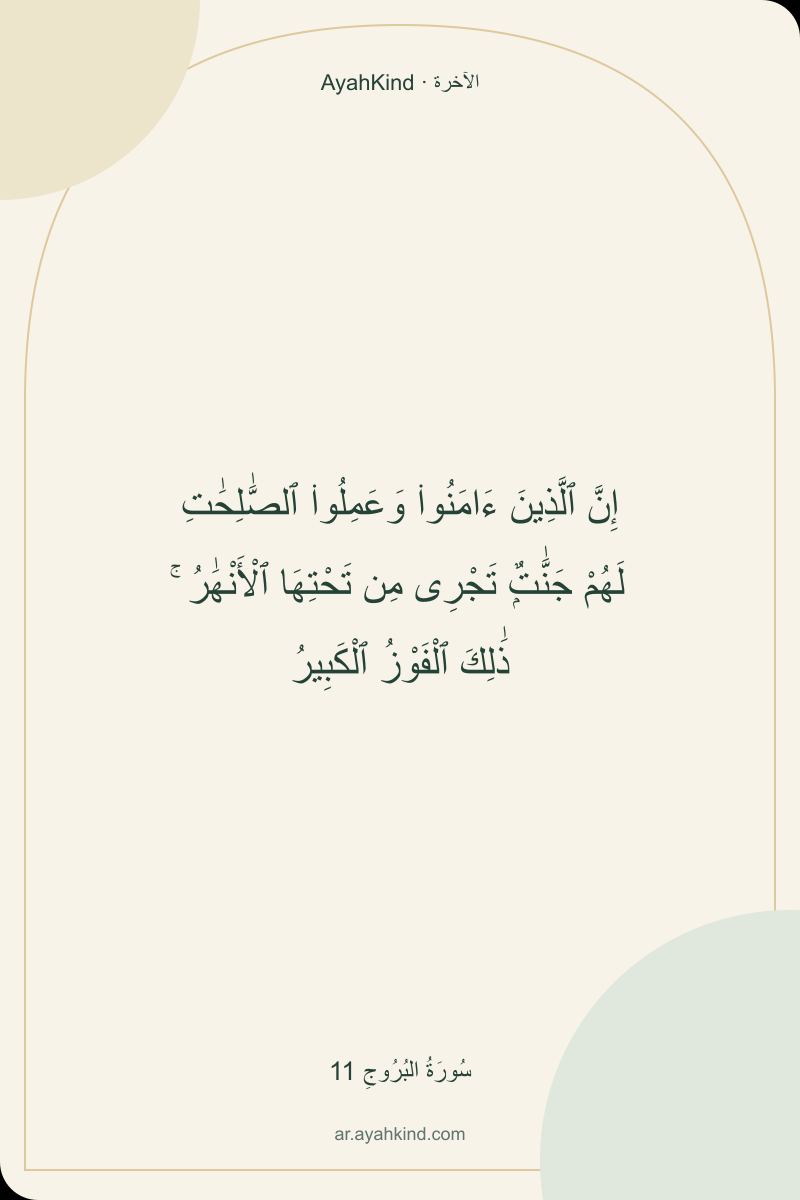 AyahKind · الآخرة
إِنَّ ٱلَّذِينَ ءَامَنُوا۟ وَعَمِلُوا۟ ٱلصَّٰلِحَٰتِ
لَهُمْ جَنَّٰتٌۭ تَجْرِى مِن تَحْتِهَا ٱلْأَنْهَٰرُ ۚ
ذَٰلِكَ ٱلْفَوْزُ ٱلْكَبِيرُ
سُورَةُ البُرُوجِ 11
ar.ayahkind.com